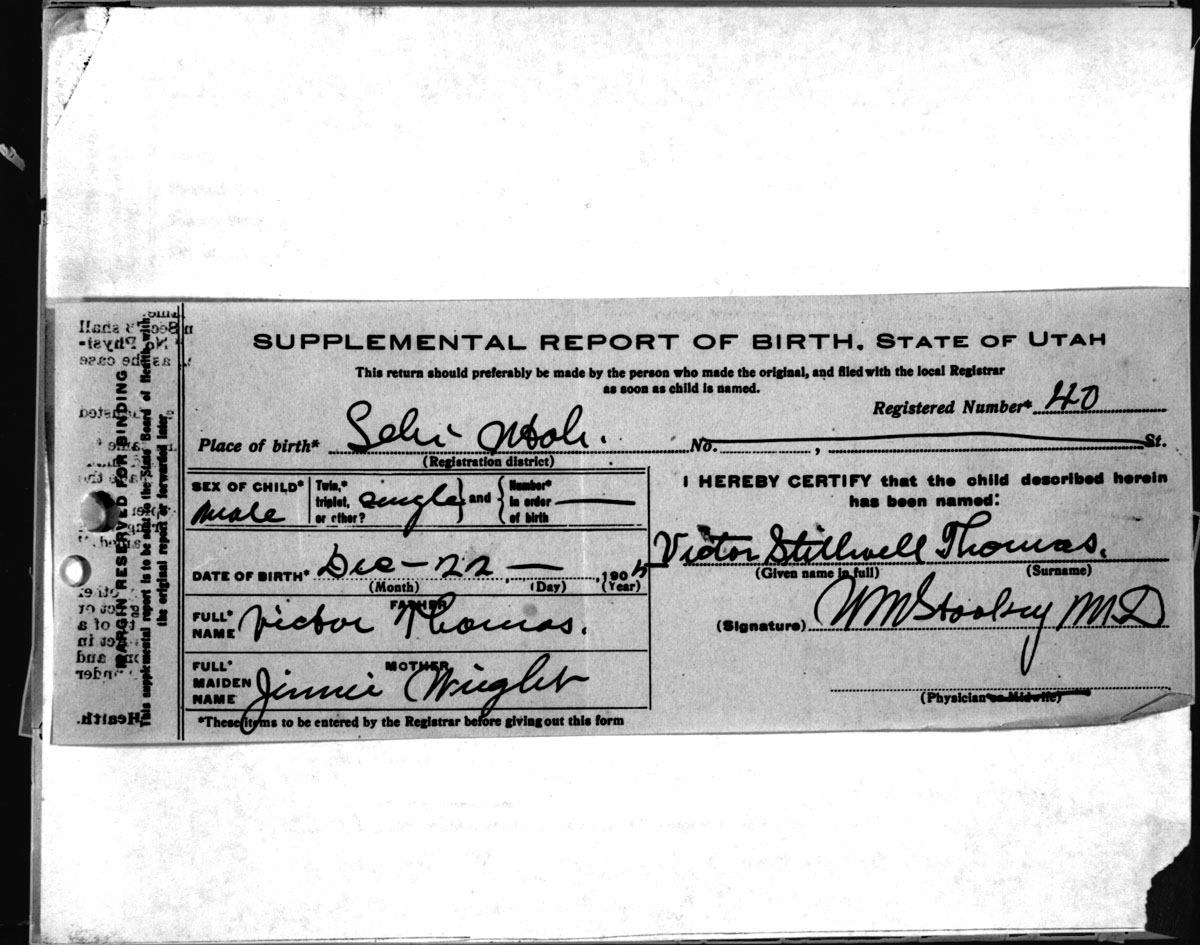 SUPPLEMENTAL REPORT OF BIRTH, STATE OF UTAH
This return should preferably be made by the person who made the original, and filed with the local Registrar
as soon as child is named.
Registered Number* 40
Place of birth* Lehi Utah. No. , St.
(Registration district)
SEX OF CHILD* Male
Twin,* triplet, or other? single and Number* in order of birth —
DATE OF BIRTH* Dec - 22, —, 190
(Month) (Day) (Year)
FATHER
FULL* NAME Victor Thomas.
MOTHER
FULL* MAIDEN NAME Jinnie Wright
*These items to be entered by the Registrar before giving out this form
I HEREBY CERTIFY that the child described herein
has been named:
Victor Stillwell Thomas.
(Given name in full) (Surname)
(Signature) MD
(Physician or Midwife)
MARGIN RESERVED FOR BINDING
This supplemental report is to be sent to the State Board of Health with
the original report or forwarded later